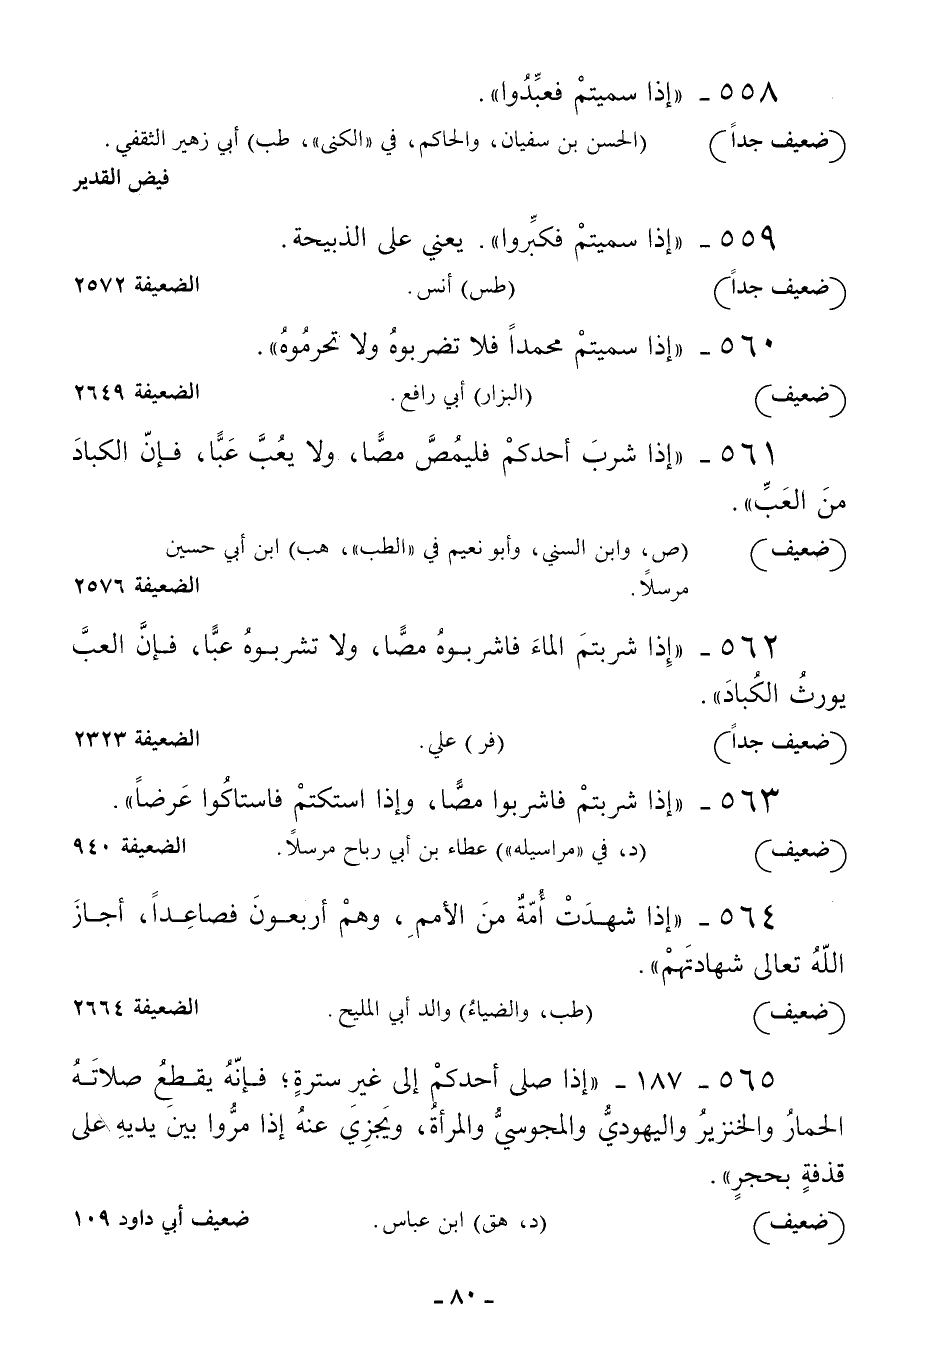 ٥٥٨ - «إذا سميتمْ فعبِّدُوا».
(ضعيف جداً) (الحسن بن سفيان، والحاكم، في «الكنى»، طب) أبي زهير الثقفي.
فيض القدير
٥٥٩ - «إذا سميتمْ فكبِّروا». يعني على الذبيحة.
(ضعيف جداً) (طس) أنس. الضعيفة ٢٥٧٢
٥٦٠ - «إذا سميتمْ محمداً فلا تضربوهُ ولا تحرمُوهُ».
(ضعيف) (البزار) أبي رافع. الضعيفة ٢٦٤٩
٥٦١ - «إذا شربَ أحدكمْ فليمُصَّ مصًّا، ولا يعُبَّ عَبًّا، فإنّ الكبادَ
منَ العَبِّ».
(ضعيف) (ص، وابن السني، وأبو نعيم في «الطب»، هب) ابن أبي حسين
مرسلاً. الضعيفة ٢٥٧٦
٥٦٢ - «إِذا شربتمَ الماءَ فاشربوهُ مصًّا، ولا تشربوهُ عبًّا، فإنَّ العبَّ
يورثُ الكُبادَ».
(ضعيف جداً) (فر) علي. الضعيفة ٢٣٢٣
٥٦٣ - «إذا شربتمْ فاشربوا مصًّا، وإذا استكتمْ فاستاكُوا عَرضاً».
(ضعيف) (د، في «مراسيله») عطاء بن أبي رباح مرسلاً. الضعيفة ٩٤٠
٥٦٤ - «إذا شهدَتْ أُمّةٌ منَ الأممِ، وهمْ أربعونَ فصاعِداً، أجازَ
اللّهُ تعالى شهادتَهمْ».
(ضعيف) (طب، والضياءُ) والد أبي المليح. الضعيفة ٢٦٦٤
٥٦٥ - ١٨٧ - «إذا صلى أحدكمْ إلى غيرِ سترةٍ؛ فإنّهُ يقطعُ صلاتَهُ
الحمارُ والخنزيرُ واليهوديُّ والمجوسيُّ والمرأةُ، ويَجزِيَ عنهُ إذا مرُّوا بينَ يديهِ على
قذفةٍ بحجرٍ».
(ضعيف) (د، هق) ابن عباس. ضعيف أبي داود ١٠٩
- ٨٠ -